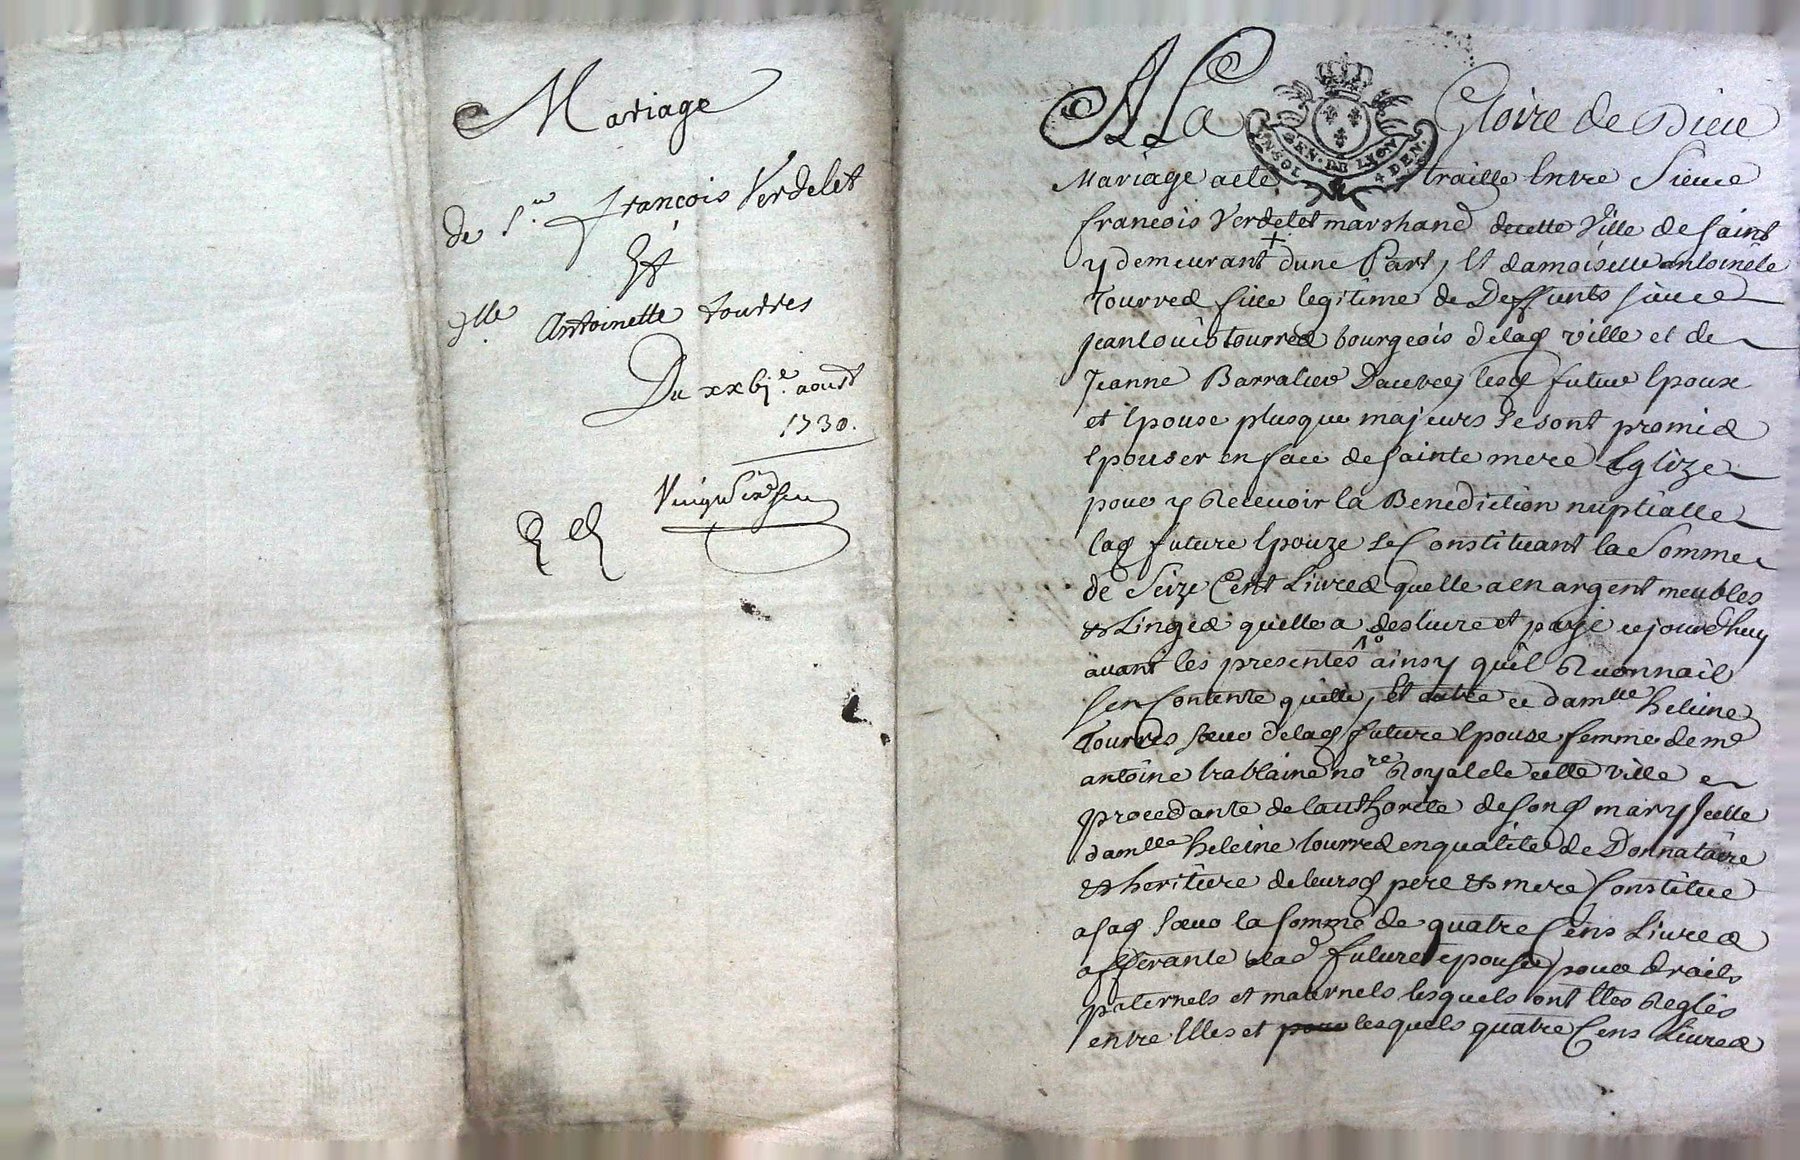 Mariage
de Sr. françois Verdelet
Et
Dlle Antoinette tourres
Du xxbje. aoust
1730.
A La Gloire de Dieu
UN SOL. GEN. DE LYON 4 DEN.
Mariage a ete traitte Entre Sieur
francois Verdelet marchand de cette Ville de saint
y demeurant dune Part, Et damoiselle antoinete
Tourres fille legitime de Deffunts sieur
jean louis tourres bourgeois de lad ville et de
Jeanne Barralier Dautre, lesd futur Epoux
et Epouse plusque majeurs se sont promis
Epouser en face de sainte mere Eglize
pour y Recevoir la Benediction nuptialle
lad future Epouze se Constituant la Somme
de Seize Cent Livres quelle a en argent meubles
& Linges quelle a deslivré et payé cejourdhuy
avant les presentes ainsy quil Reconnait
sen Contente quitte, Et outre ce damlle heleine
Tourres sœur delad future Epouse femme de me
antoine trablaine nore Royal de cette ville
procedante de lauthorite de sond mary Icelle
damlle heleine tourres en qualité de Donnataire
& heritiere de leursd pere & mere Constitue
a sad sœur la somme de quatre Cens Livres
afferante alad future epouse pour droits
paternels et maternels lesquels ont Etes Reglés
entre Elles et lesquels quatre Cens Livres